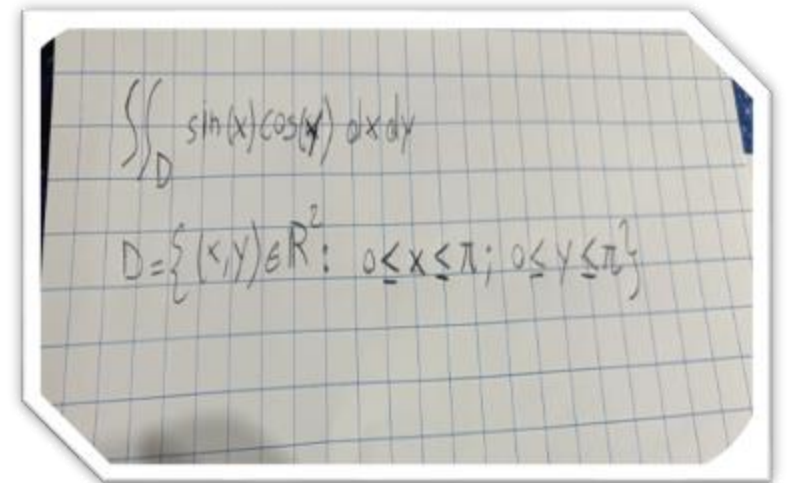 ∬_D sin(x) cos(y) dx dy
D = {(x,y) ∈ ℝ²: 0 ≤ x ≤ π; 0 ≤ y ≤ π}